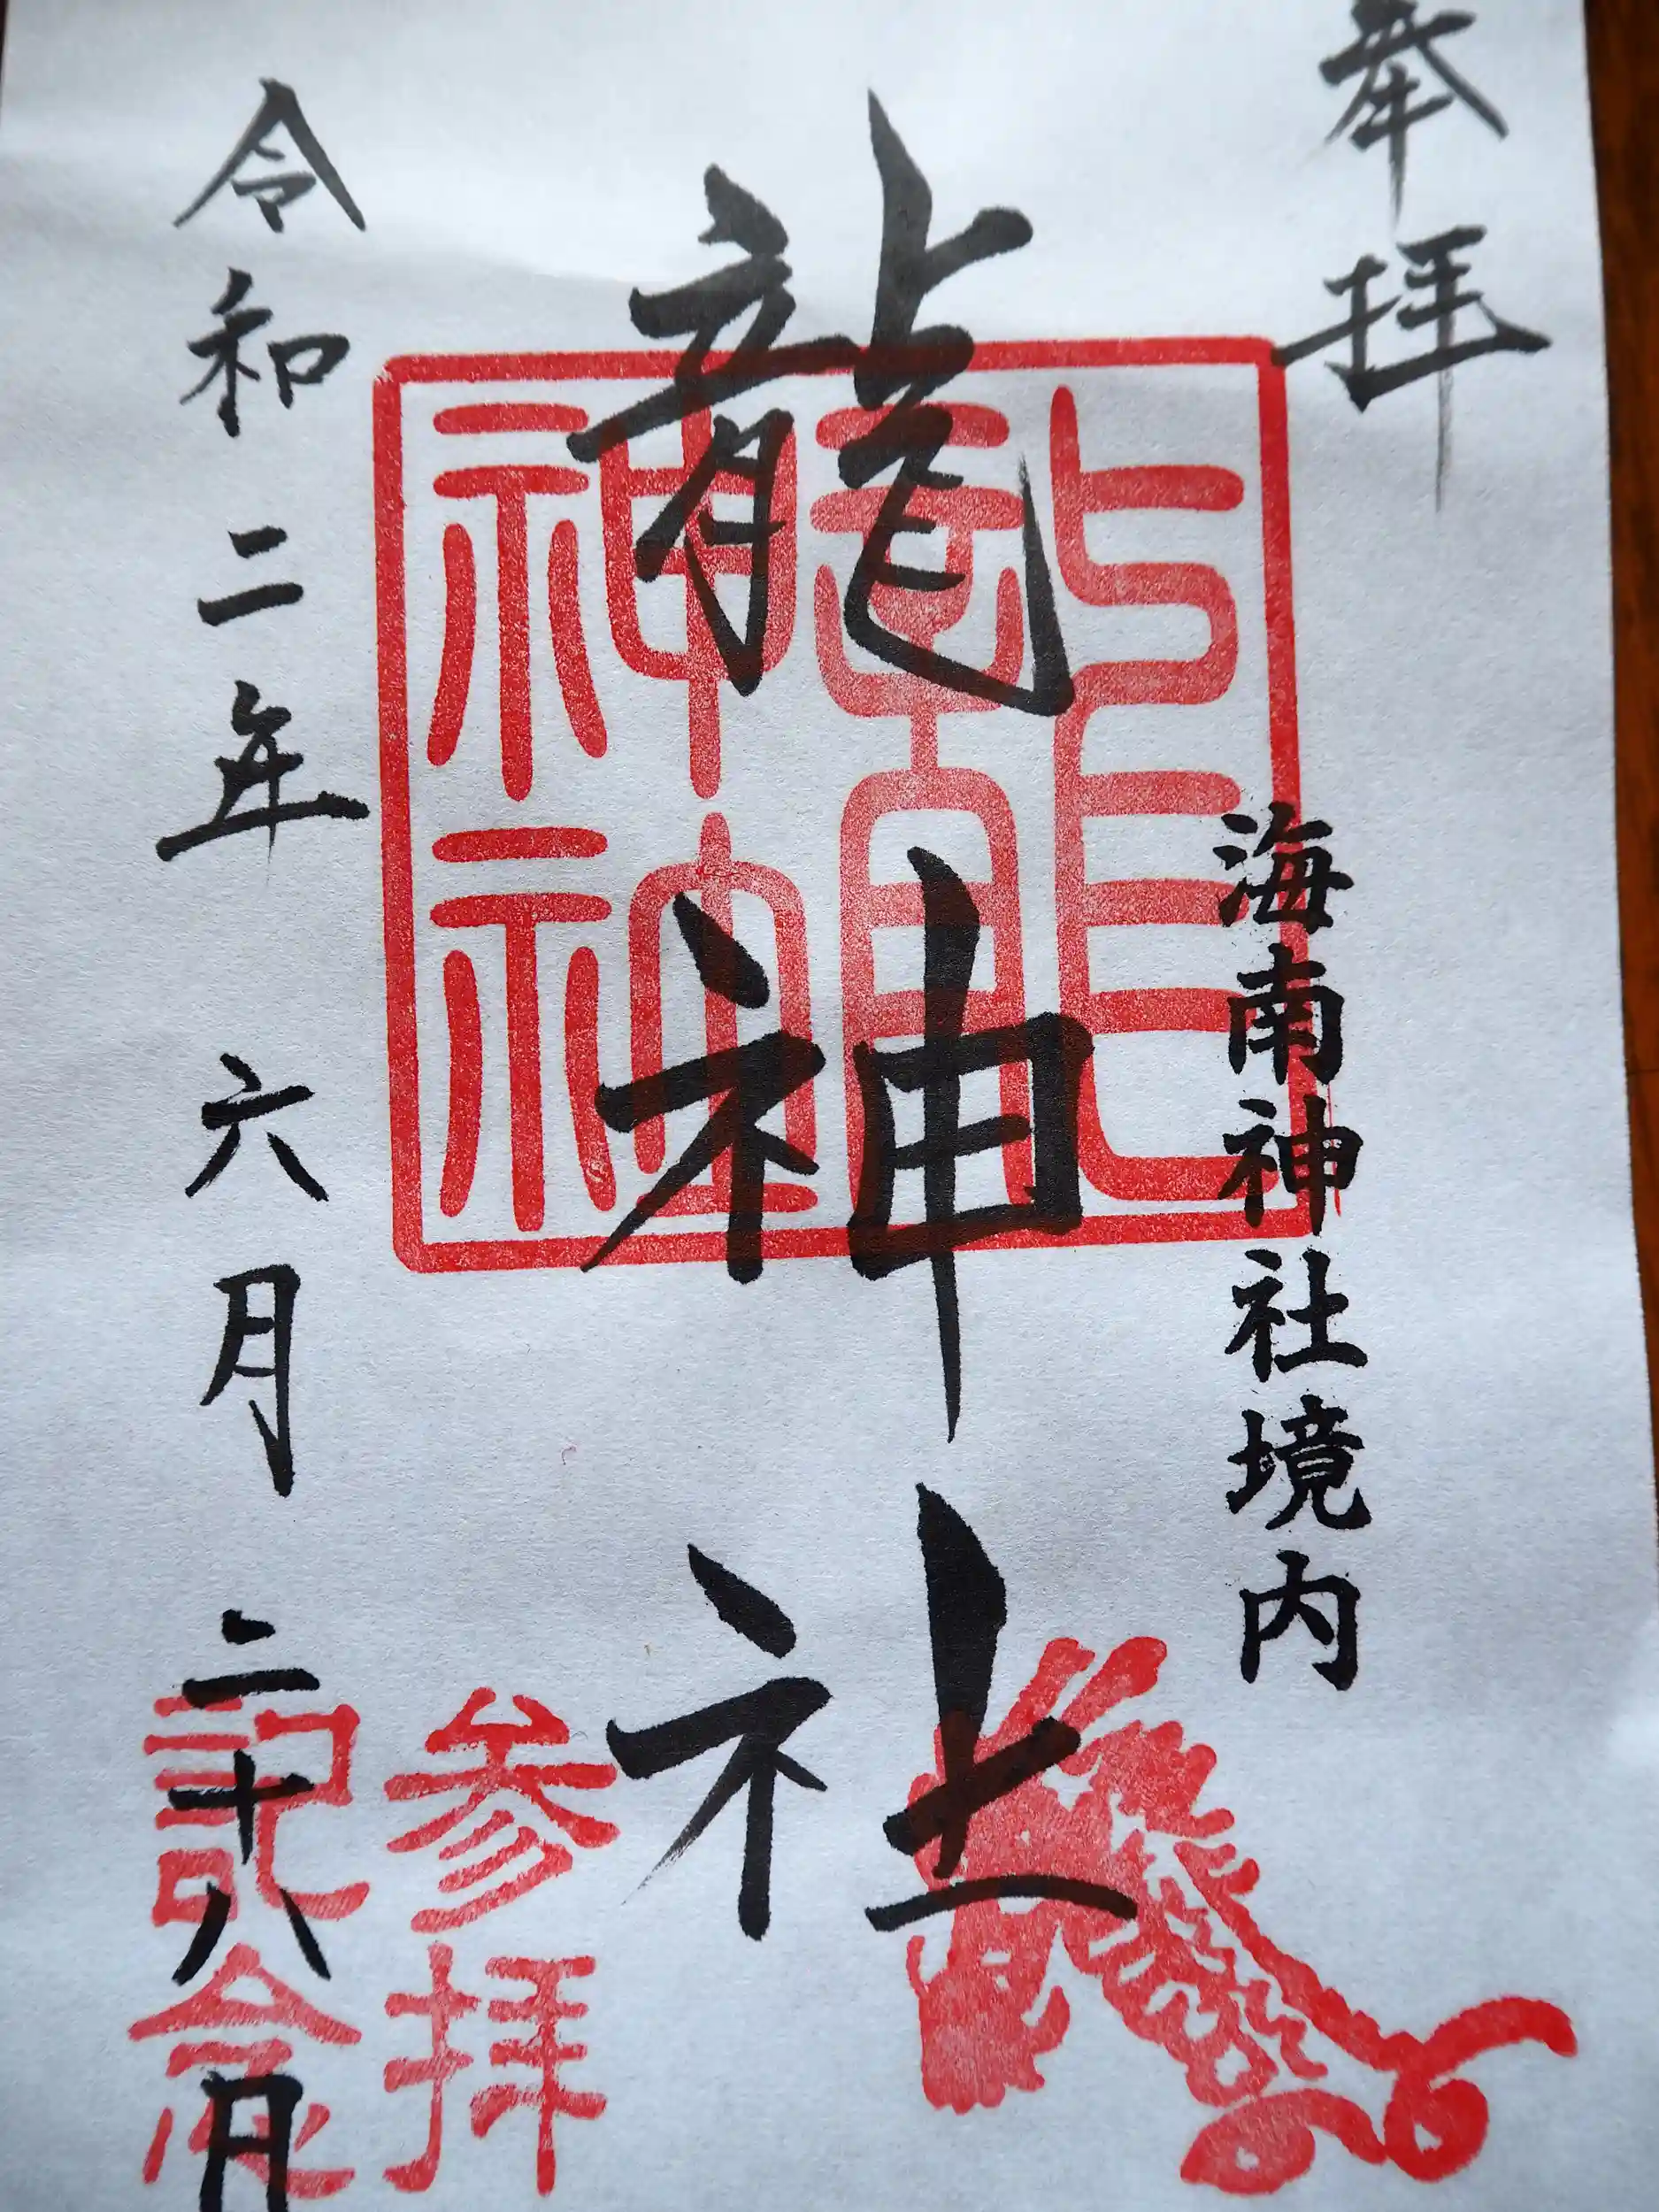 奉拝
海南神社境内
龍神社
龍神神社
令和二年 六月 二十八日
参拝
記念